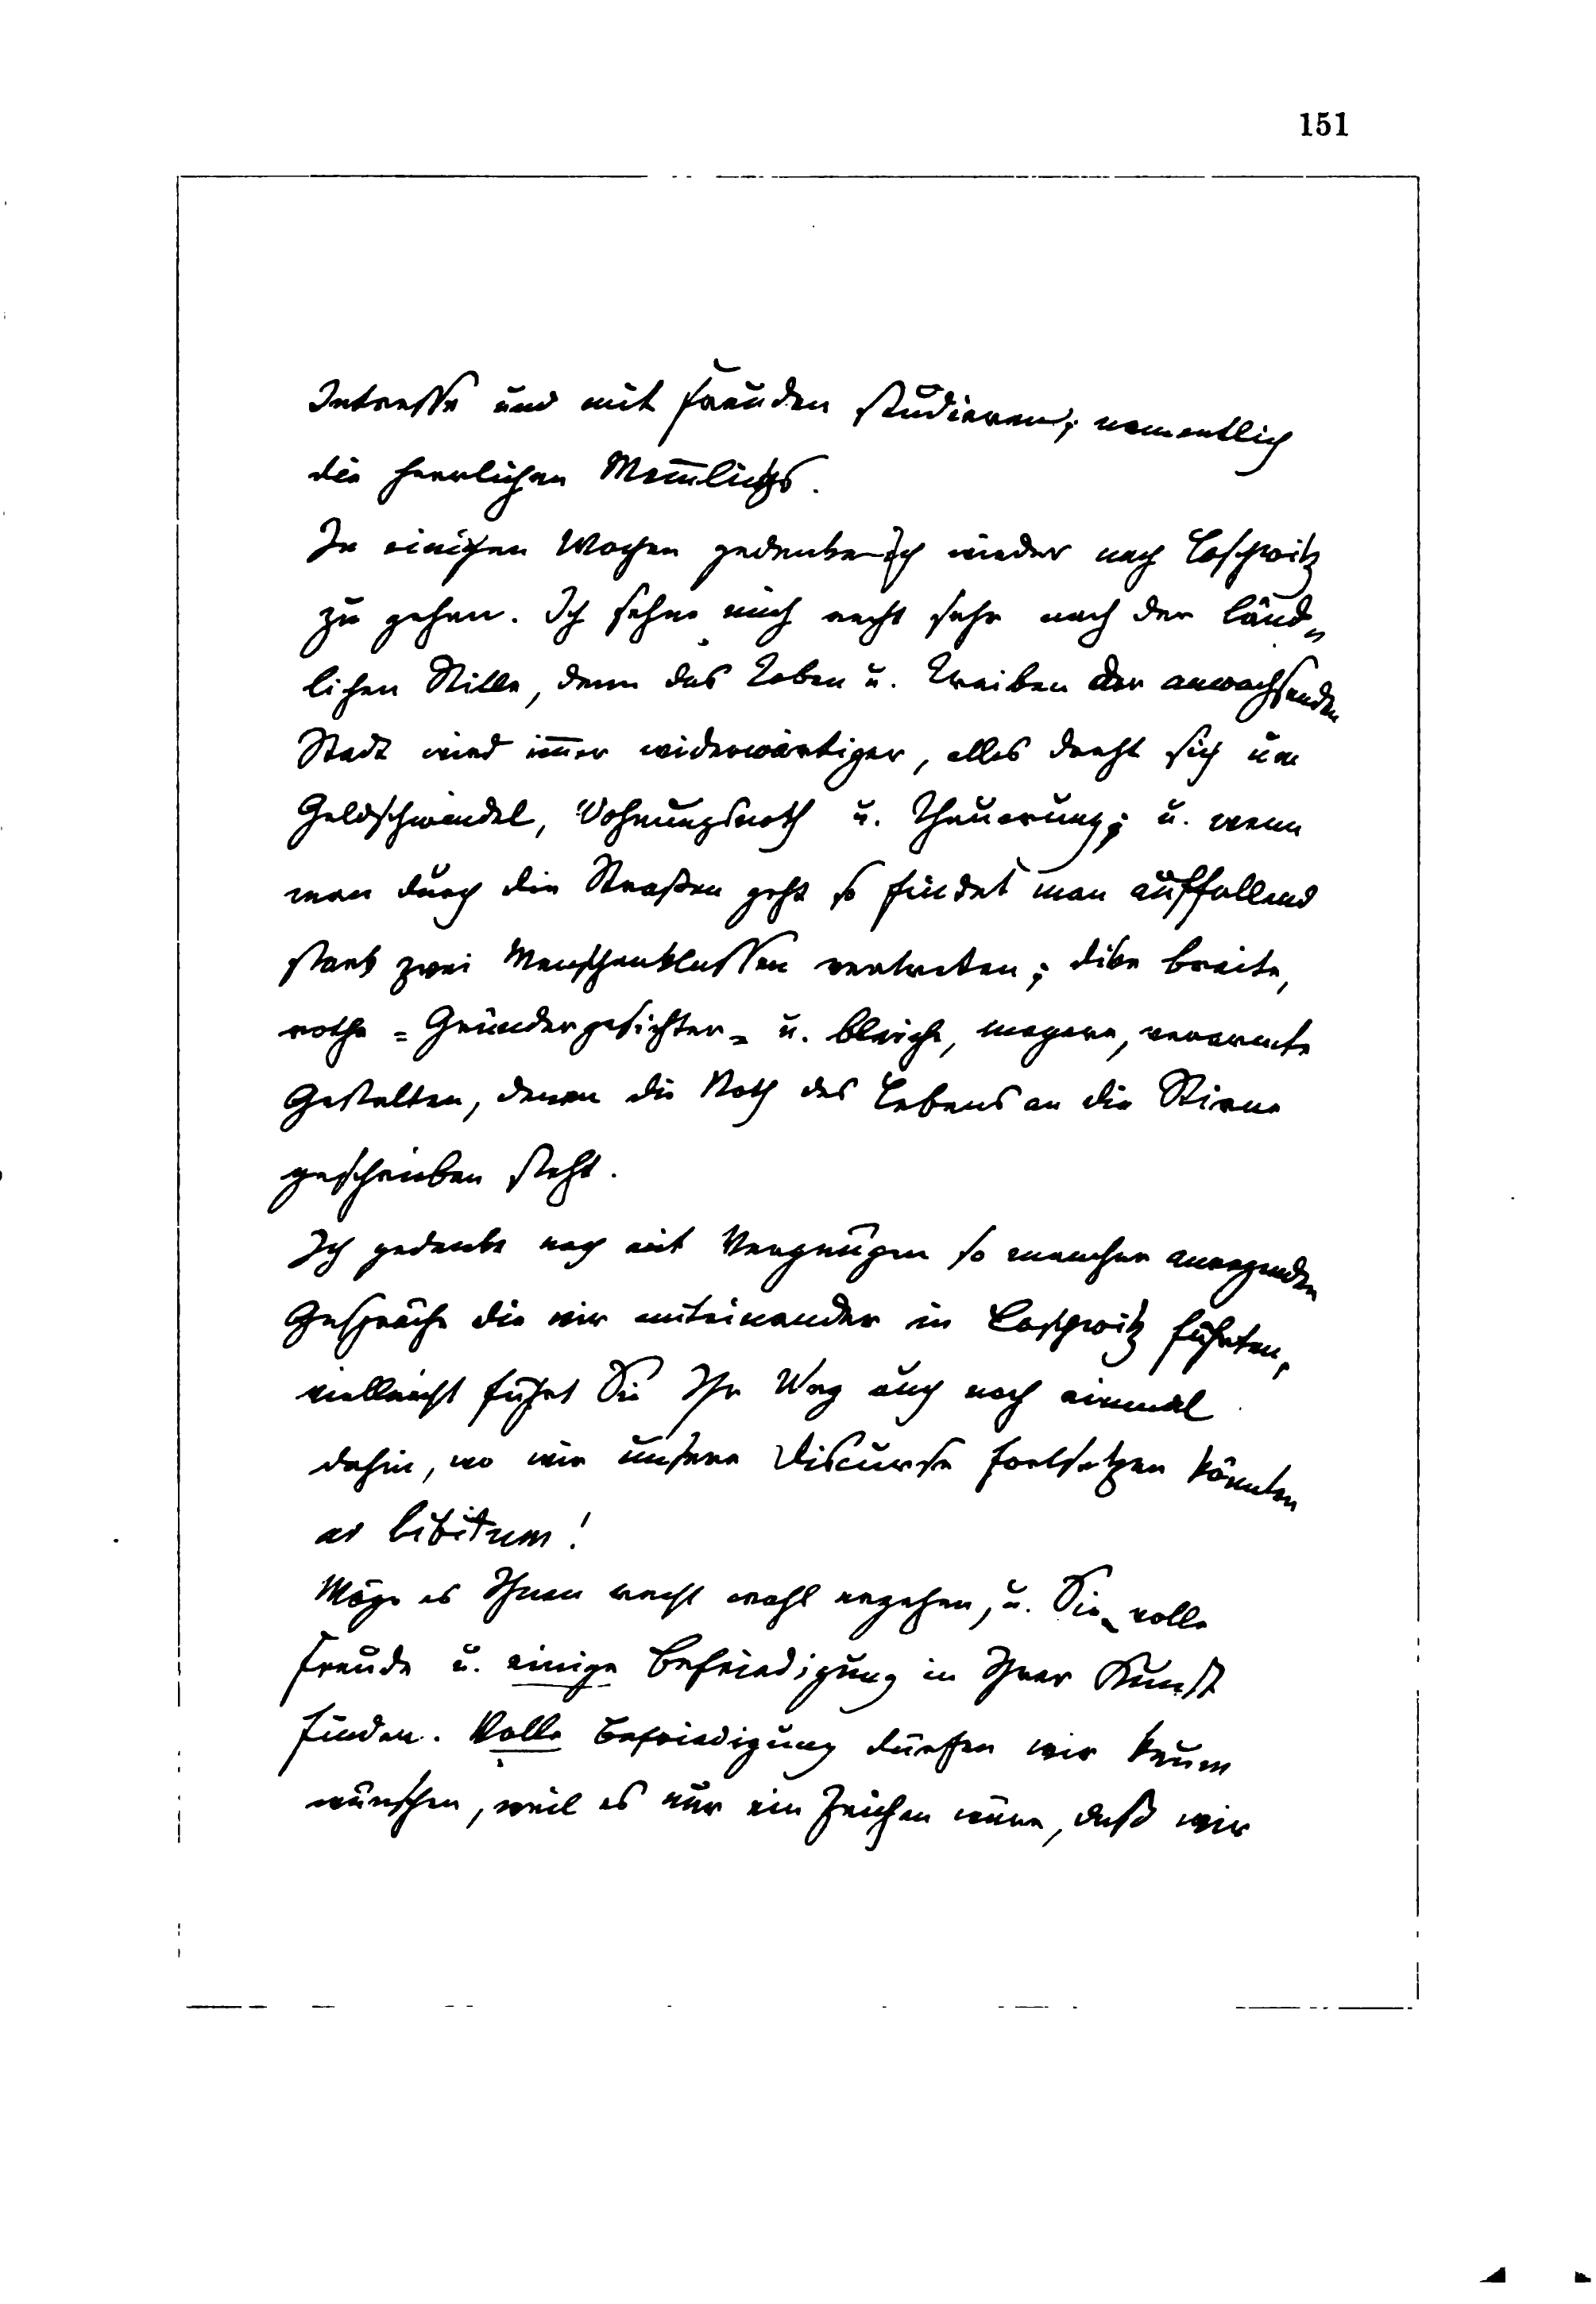 151
Intresse und mit Freuden studieren; namentlich
die herrlichen Mem̅lings.
In einigen Wochen gedenke ich wieder nach Loschwitz
zu gehen. Ich sehne mich recht sehr nach der länd„
lichen Stille, denn das Toben u. Treiben der anwachsenden
Stadt wird im̅er widerwärtiger, alles dreht sich um
Geldschwindel, Wohnungsnoth u. Theuerung; u. wenn
man durch die Straßen geht so findet man auffallend
stark zwei Menschenklassen vertreten; dike breite,
rothe = Gründergesichter = u. bleiche, magere, verarmte
Gestalten, denen die Noth des Lebens an die Stirne
geschrieben steht.
Ich gedenke noch mit Vergnügen so mancher anregenden
Gespräche die wir miteinander in Loschwitz führten,
vielleicht führt Sie Ihr Weg auch noch einmal
dahin, wo wir unsere Discurse fortsetzen könnten
ad libitum!
Möge es Ihnen recht wohl ergehen, u. Sie volle
Freude u. einige Befriedigung in Ihrer Kunst
finden. Volle Befriedigung dürfen wir kaum
wünschen, weil es nur ein Zeichen wäre, daß wir